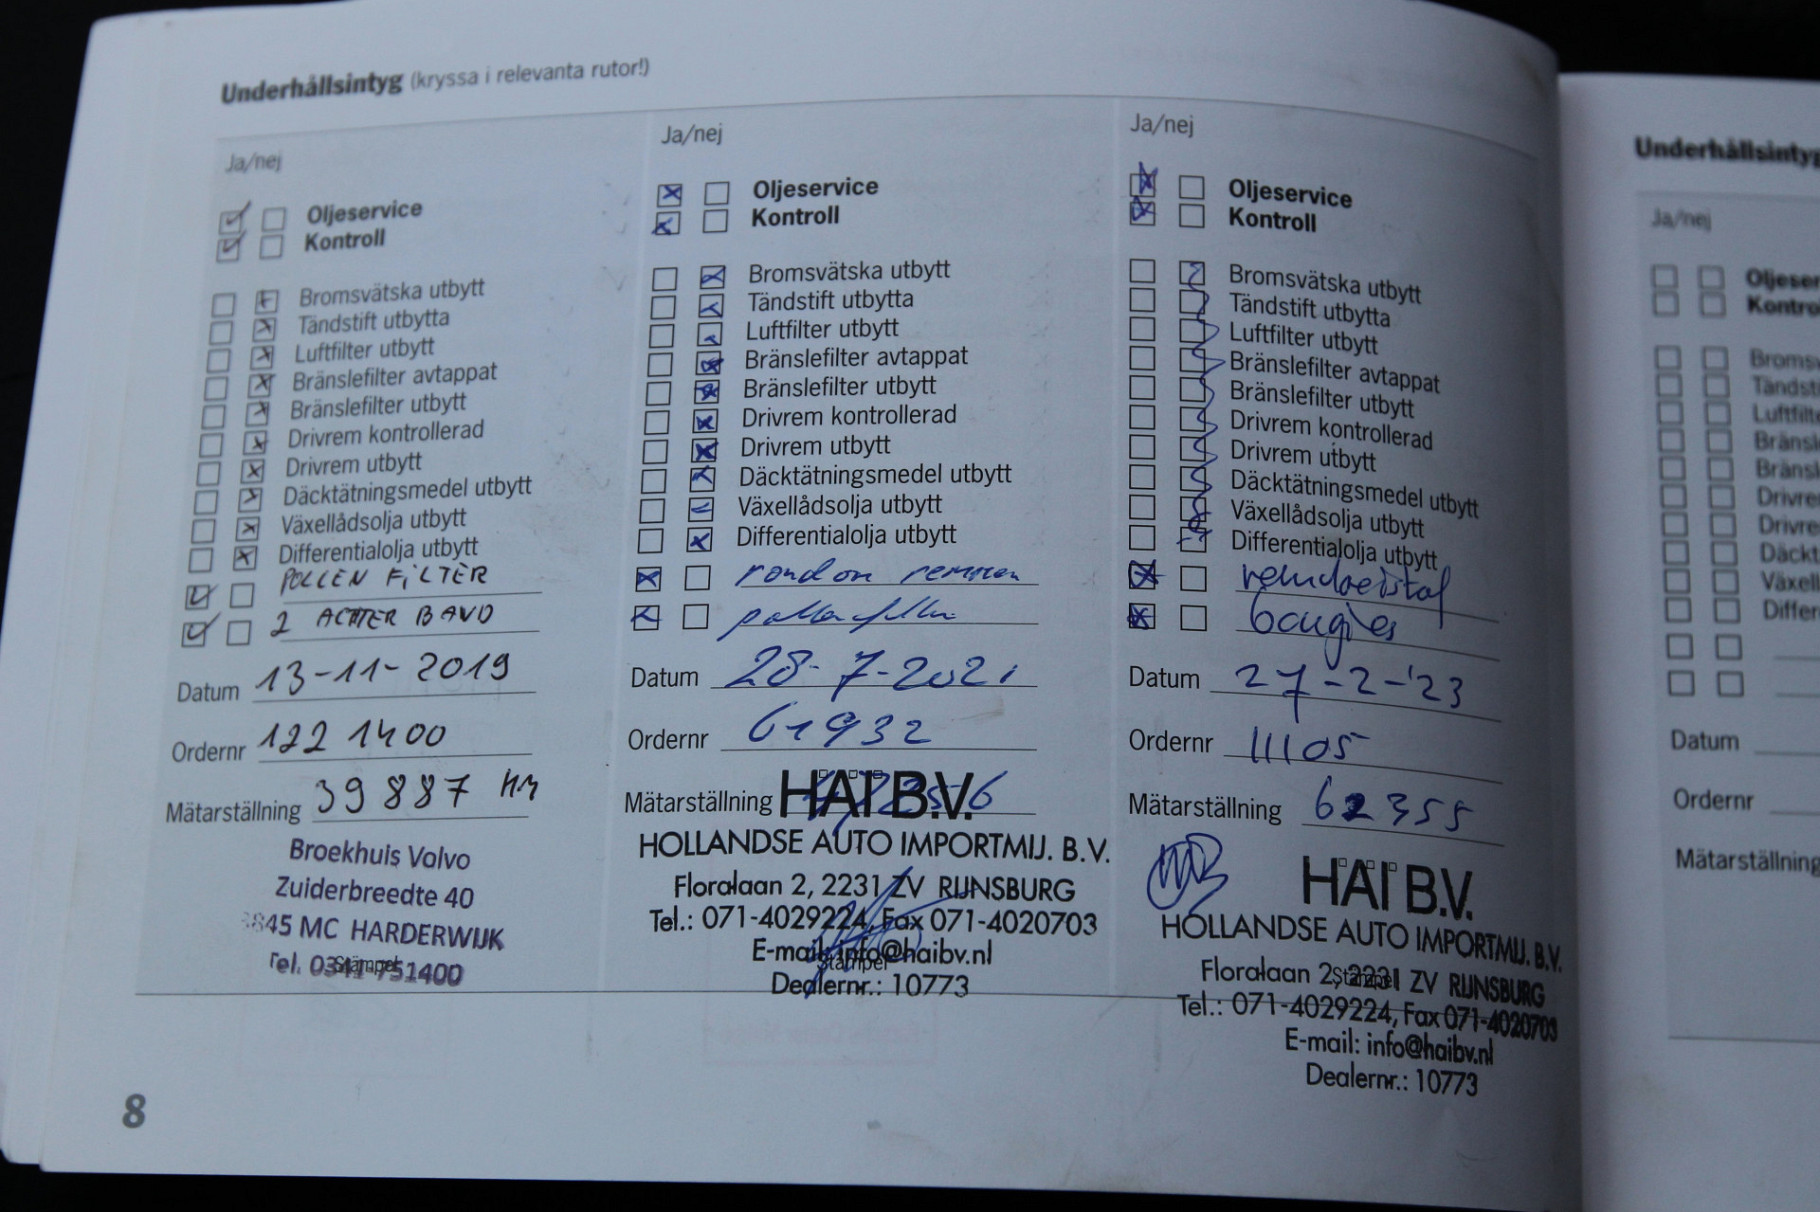 Underhållsintyg (kryssa i relevanta rutor!)
Ja/nej
Oljeservice
Kontroll
Bromsvätska utbytt
Tändstift utbytta
Luftfilter utbytt
Bränslefilter avtappat
Bränslefilter utbytt
Drivrem kontrollerad
Drivrem utbytt
Däcktätningsmedel utbytt
Växellådsolja utbytt
Differentialolja utbytt
POLLEN FILTER
2 ACHTER BAND
Datum 13-11-2019
Ordernr 122 1400
Mätarställning 39887 KM
Broekhuis Volvo
Zuiderbreedte 40
3845 MC HARDERWIJK
Tel. 0341-751400
Stämpel
Ja/nej
Oljeservice
Kontroll
Bromsvätska utbytt
Tändstift utbytta
Luftfilter utbytt
Bränslefilter avtappat
Bränslefilter utbytt
Drivrem kontrollerad
Drivrem utbytt
Däcktätningsmedel utbytt
Växellådsolja utbytt
Differentialolja utbytt
rondom remmen
pollenfilter
Datum 28-7-2021
Ordernr 61932
Mätarställning
HAI B.V.
HOLLANDSE AUTO IMPORTMIJ. B.V.
Floralaan 2, 2231 ZV RIJNSBURG
Tel.: 071-4029224, Fax 071-4020703
E-mail: info@haibv.nl
Stämpel
Dealernr.: 10773
Ja/nej
Oljeservice
Kontroll
Bromsvätska utbytt
Tändstift utbytta
Luftfilter utbytt
Bränslefilter avtappat
Bränslefilter utbytt
Drivrem kontrollerad
Drivrem utbytt
Däcktätningsmedel utbytt
Växellådsolja utbytt
Differentialolja utbytt
remvloeistof
bougies
Datum 27-2-'23
Ordernr 11105
Mätarställning 62355
HAI B.V.
HOLLANDSE AUTO IMPORTMIJ. B.V.
Floralaan 2, 2231 ZV RIJNSBURG
Stämpel
Tel.: 071-4029224, Fax 071-4020703
E-mail: info@haibv.nl
Dealernr.: 10773
8
Underhållsintyg
Ja/nej
Oljeser
Kontro
Bromsv
Tändst
Luftfilte
Bränsl
Bränsl
Drivre
Drivre
Däckt
Växel
Differ
Datum
Ordernr
Mätarställning